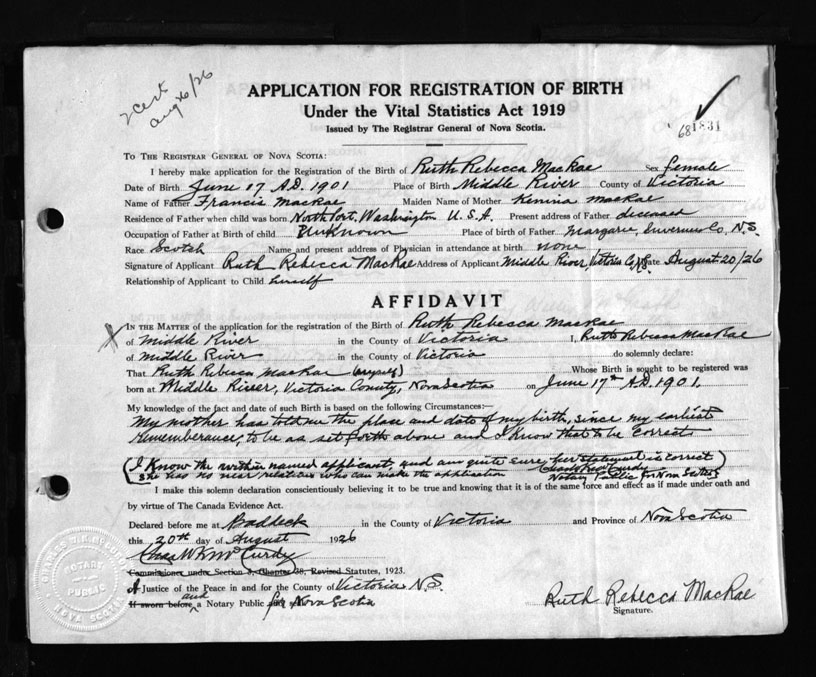 2 cert
Aug 26/26
APPLICATION FOR REGISTRATION OF BIRTH
Under the Vital Statistics Act 1919
Issued by The Registrar General of Nova Scotia.
681831
To The Registrar General of Nova Scotia:
I hereby make application for the Registration of the Birth of Ruth Rebecca MacRae Sex female
Date of Birth June 17 A.D. 1901 Place of Birth Middle River County of Victoria
Name of Father Francis MacRae Maiden Name of Mother Kemina MacRae
Residence of Father when child was born North Port, Washington U.S.A. Present address of Father deceased
Occupation of Father at Birth of child Unknown Place of birth of Father Margaree, Inverness Co, N.S.
Race Scotch Name and present address of Physician in attendance at birth none
Signature of Applicant Ruth Rebecca MacRae Address of Applicant Middle River, Victoria Co, N.S. Date August 20/26
Relationship of Applicant to Child herself
AFFIDAVIT
In the Matter of the application for the registration of the Birth of Ruth Rebecca MacRae
of Middle River in the County of Victoria I, Ruth Rebecca MacRae
of Middle River in the County of Victoria do solemnly declare:
That Ruth Rebecca MacRae (myself) Whose Birth is sought to be registered was
born at Middle River, Victoria County, Nova Scotia on June 17th A.D. 1901.
My knowledge of the fact and date of such Birth is based on the following Circumstances:—
My mother has told me the place and date of my birth, since my earliest
rememberance, to be as set forth above and I know that to be correct
(I know the within named applicant, and am quite sure, her statement is correct)
she has no near relatives who can make the application
Notary Public for Nova Scotia
I make this solemn declaration conscientiously believing it to be true and knowing that it is of the same force and effect as if made under oath and
by virtue of The Canada Evidence Act.
Declared before me at Baddeck in the County of Victoria and Province of Nova Scotia
this 20th day of August 1926
Chas W K McCurdy
Commissioner under Section 3, Chapter 38, Revised Statutes, 1923.
A Justice of the Peace in and for the County of Victoria N.S.
If sworn before and a Notary Public for Nova Scotia
Ruth Rebecca MacRae
Signature.
NOTARY
PUBLIC
NOVA SCOTIA